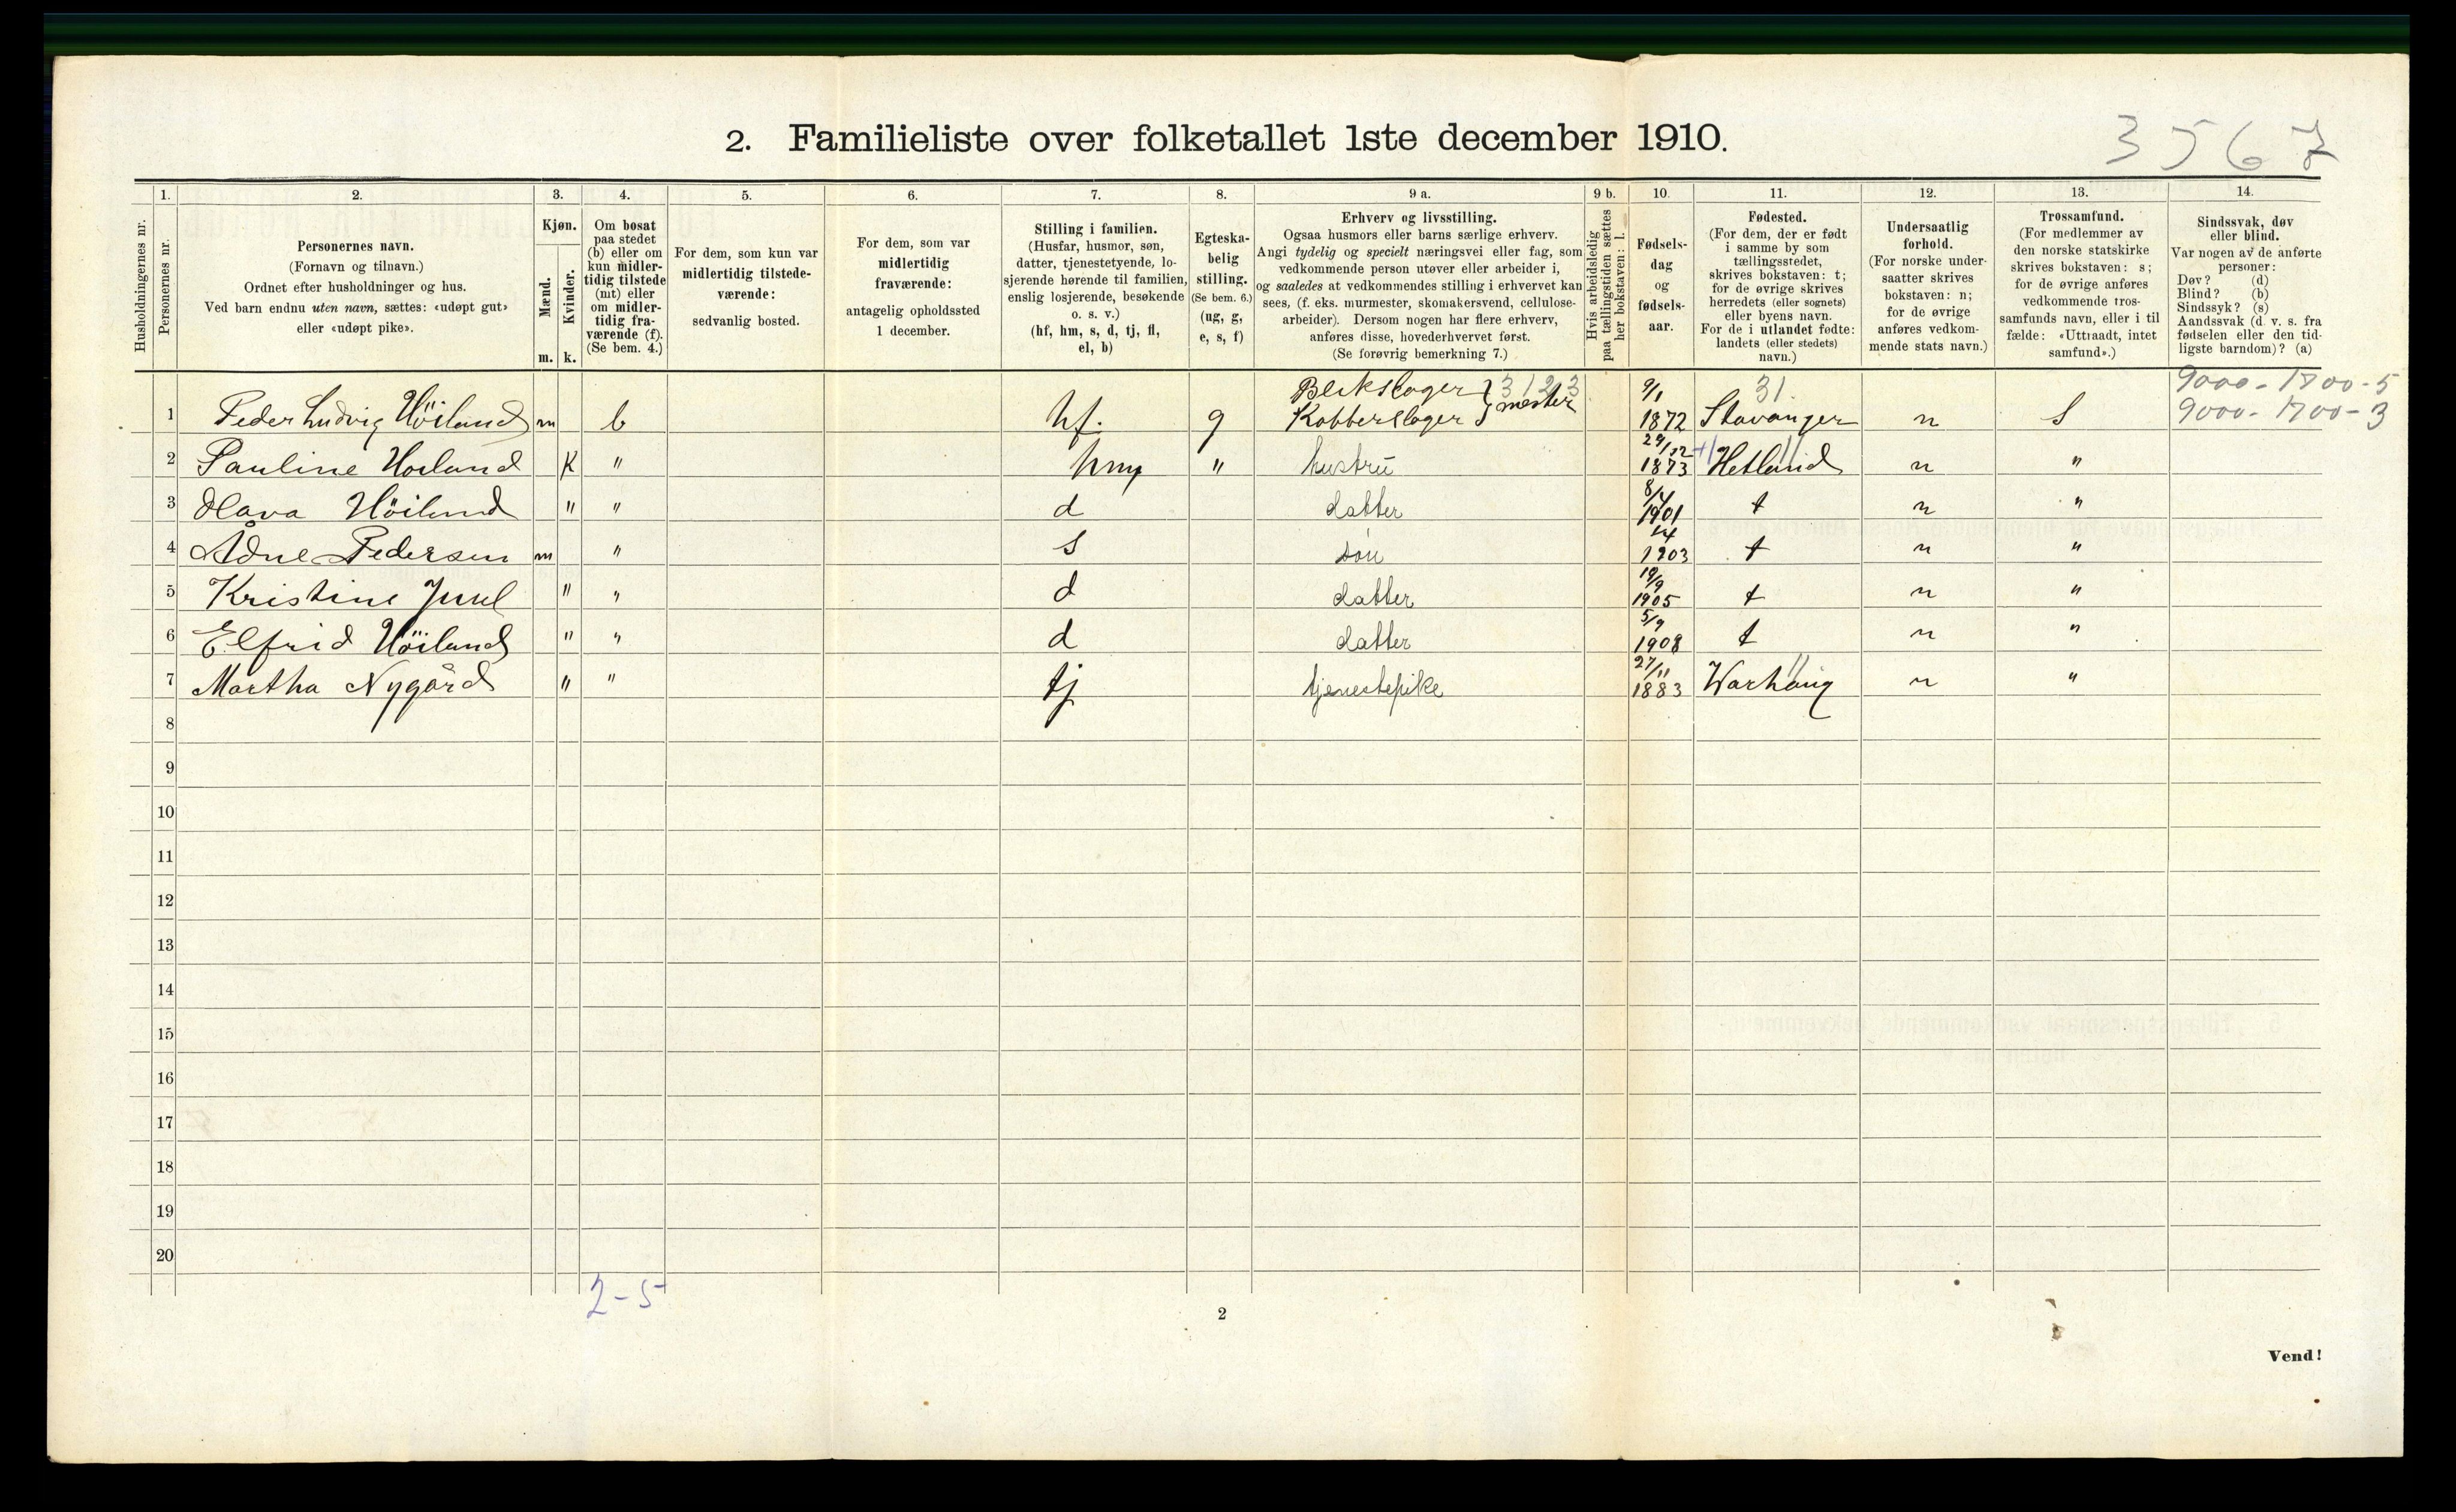 2. Familieliste over folketallet 1ste december 1910.
3567
Husholdningernes nr.
1.
Personernes nr.
2.
Personernes navn.
(Fornavn og tilnavn.)
Ordnet efter husholdninger og hus.
Ved barn endnu uten navn, sættes: «udøpt gut»
eller «udøpt pike».
3.
Kjøn.
Mænd.
Kvinder.
m. k.
4.
Om bosat
paa stedet
(b) eller om
kun midler-
tidig tilstede
(mt) eller
om midler-
tidig fra-
værende (f).
(Se bem. 4.)
5.
For dem, som kun var
midlertidig tilstede-
værende:
sedvanlig bosted.
6.
For dem, som var
midlertidig
fraværende:
antagelig opholdssted
1 december.
7.
Stilling i familien.
(Husfar, husmor, søn,
datter, tjenestetyende, lo-
sjerende hørende til familien,
enslig losjerende, besøkende
o. s. v.)
(hf, hm, s, d, tj, fl,
el, b)
8.
Egteska-
belig
stilling.
(Se bem. 6.)
(ug, g,
e, s, f)
9 a.
Erhverv og livsstilling.
Ogsaa husmors eller barns særlige erhverv.
Angi tydelig og specielt næringsvei eller fag, som
vedkommende person utøver eller arbeider i,
og saaledes at vedkommendes stilling i erhvervet kan
sees, (f. eks. murmester, skomakersvend, cellulose-
arbeider). Dersom nogen har flere erhverv,
anføres disse, hovederhvervet først.
(Se forøvrig bemerkning 7.)
9 b.
Hvis arbeidsledig
paa tællingstiden sættes
her bokstaven: l.
10.
Fødsels-
dag
og
fødsels-
aar.
11.
Fødested.
(For dem, der er født
i samme by som
tællingsstedet,
skrives bokstaven: t;
for de øvrige skrives
herredets (eller sognets)
eller byens navn.
For de i utlandet fødte:
landets (eller stedets)
navn.)
12.
Undersaatlig
forhold.
(For norske under-
saatter skrives
bokstaven: n;
for de øvrige
anføres vedkom-
mende stats navn.)
13.
Trossamfund.
(For medlemmer av
den norske statskirke
skrives bokstaven: s;
for de øvrige anføres
vedkommende tros-
samfunds navn, eller i til
fælde: «Uttraadt, intet
samfund».)
14.
Sindssvak, døv
eller blind.
Var nogen av de anførte
personer:
Døv? (d)
Blind? (b)
Sindssyk? (s)
Aandssvak (d. v. s. fra
fødselen eller den tid-
ligste barndom)? (a)
Blikslager } 3123 9/1 31. 9000-1800-5
1 Peder Ludvig Höiland m b hf. g Kobberslager mester 1872 Stavanger n S 9000-1700-3
2 Pauline Höiland K " hm " hustru 29/12 1873 Hetland n "
3 Olava Höiland " " d datter 8/4 1901 t n "
4 Ådne Pedersen m " s sön 1903 t n "
5 Kristine Juul " " d datter 19/9 1905 t n "
6 Elfrid Höiland " " d datter 5/9 1908 t n "
7 Martha Nygård " " tj tjenestepike 27/11 1883 Warhaug n "
8
9
10
11
12
13
14
15
16
17
18
19
20
2-5
2
Vend!